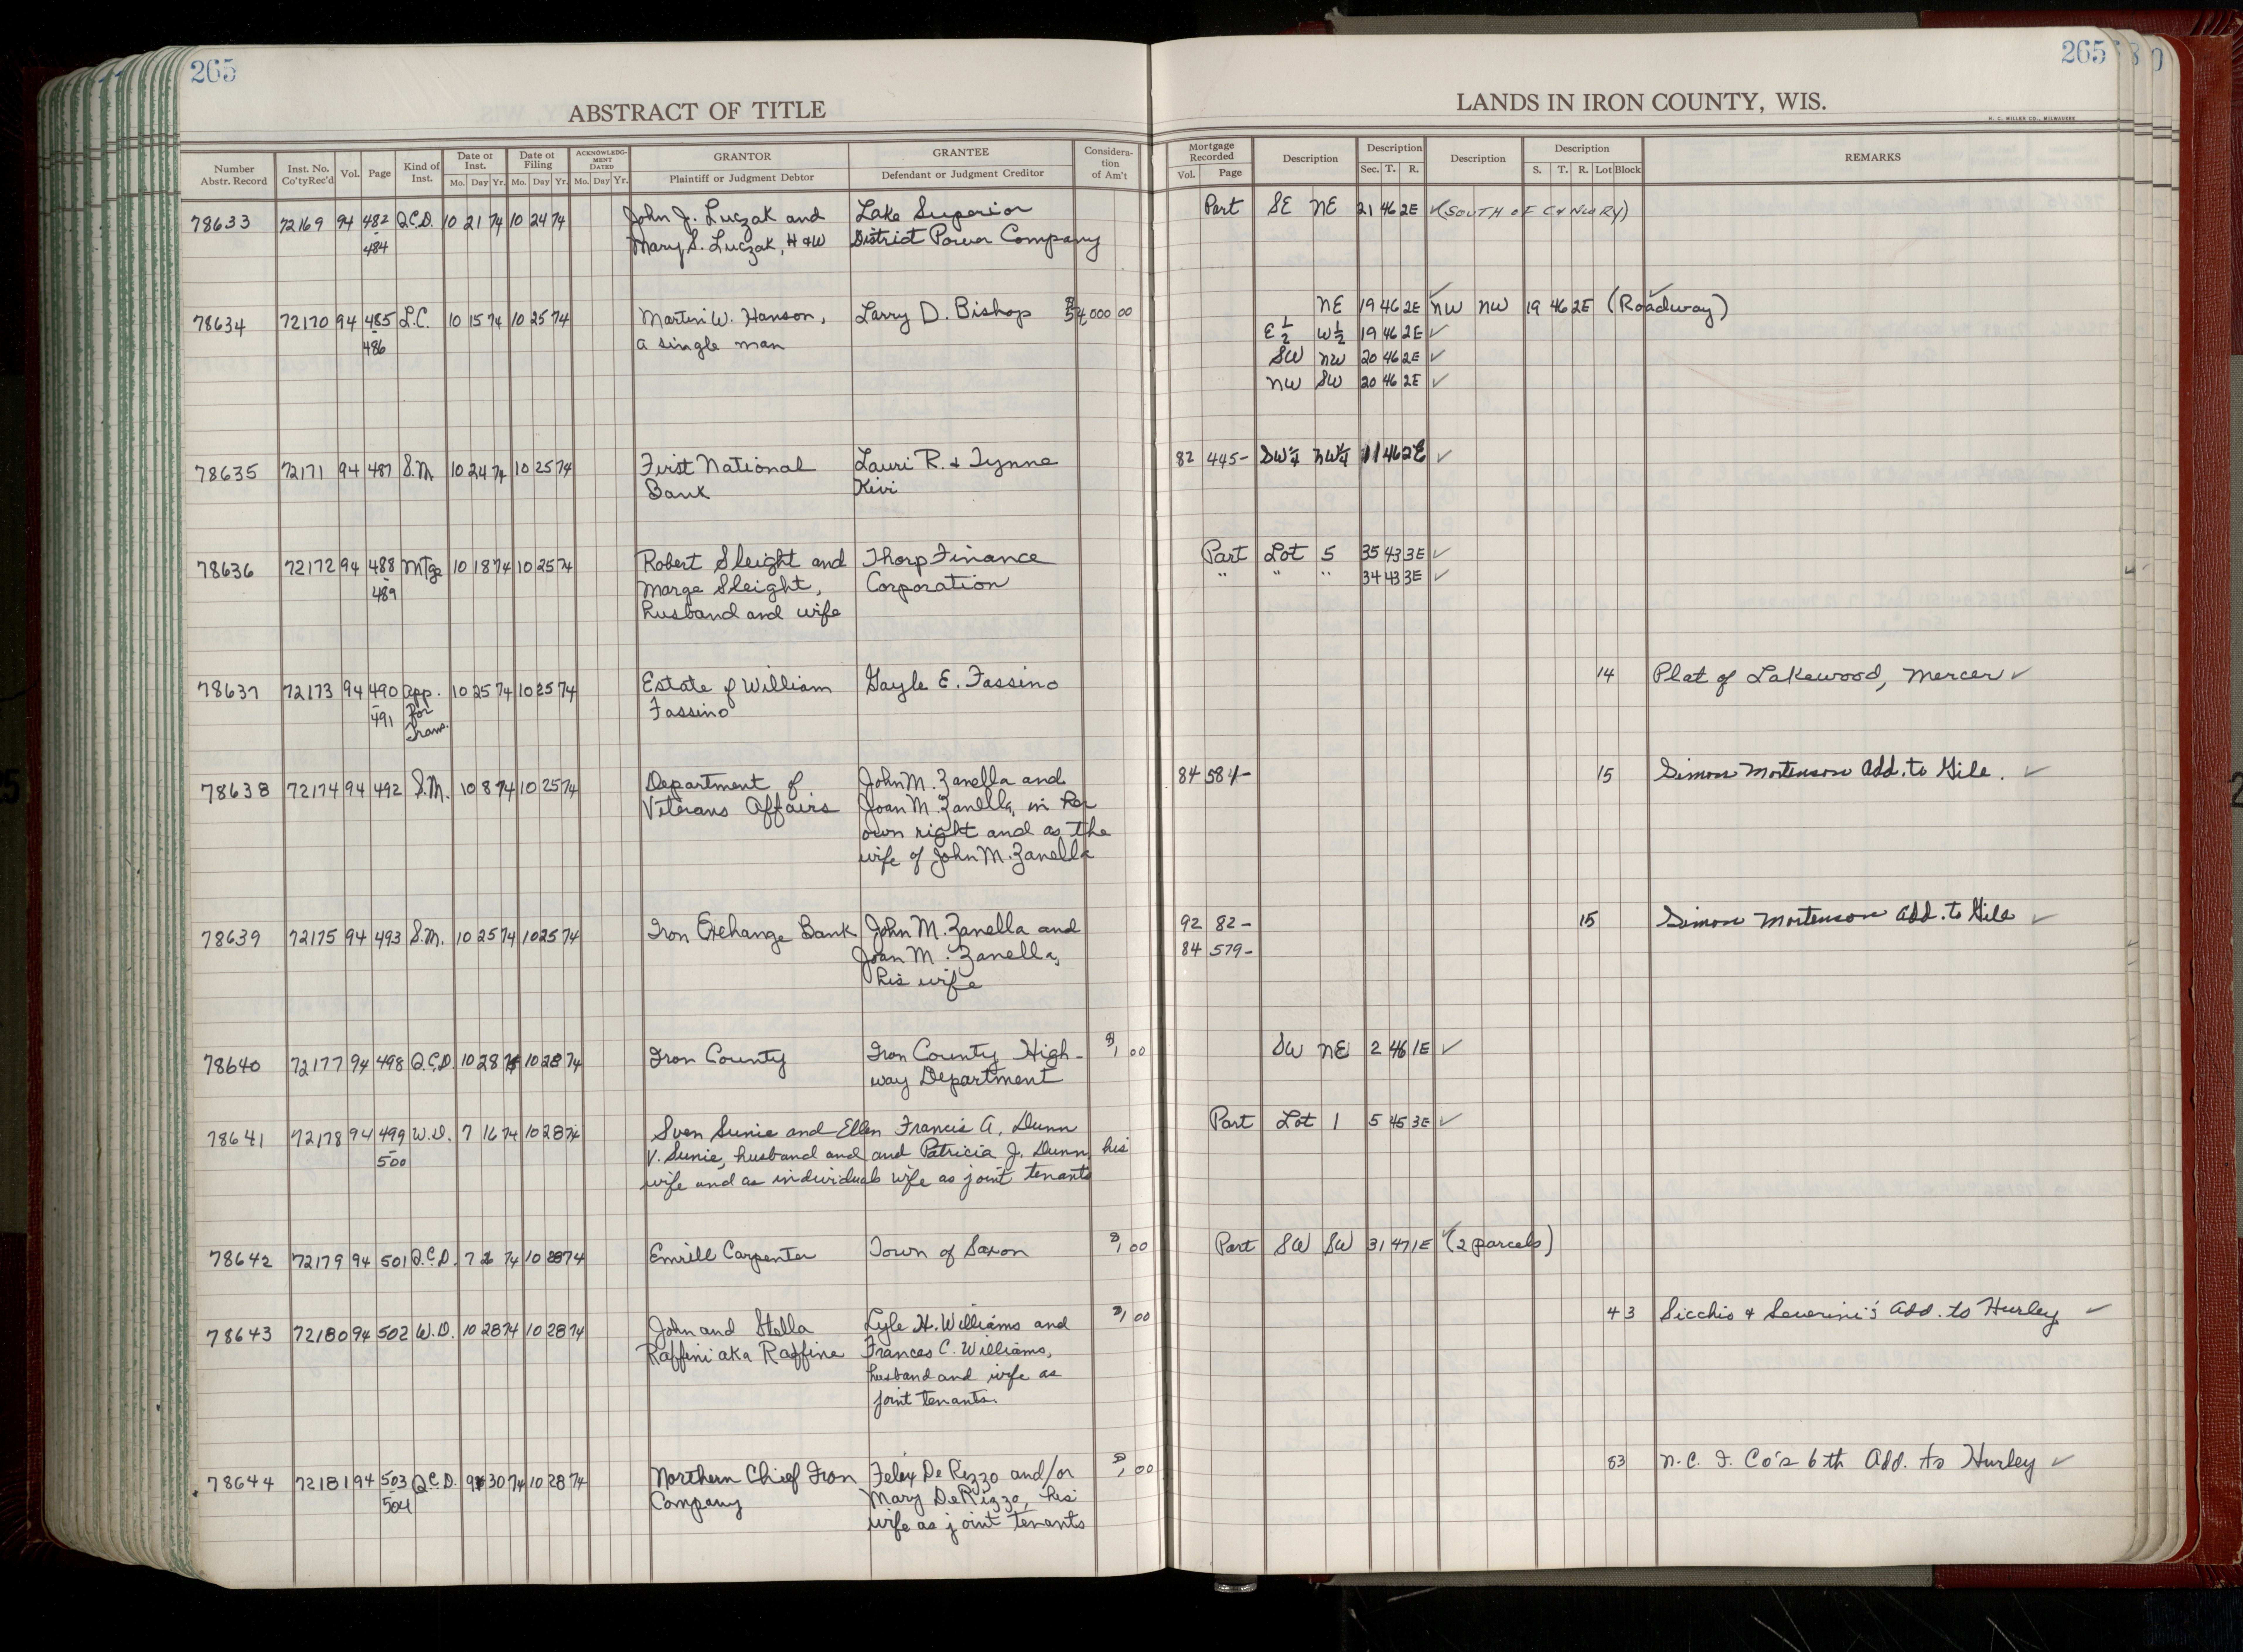 265
265
ABSTRACT OF TITLE
LANDS IN IRON COUNTY, WIS.
H. C. MILLER CO., MILWAUKEE
Number Abstr. Record | Inst. No. Co'tyRec'd | Vol. | Page | Kind of Inst. | Date of Inst. Mo. Day Yr. | Date of Filing Mo. Day Yr. | ACKNOWLEDG-MENT DATED Mo. Day Yr. | GRANTOR Plaintiff or Judgment Debtor | GRANTEE Defendant or Judgment Creditor | Considera-tion of Am't | Mortgage Recorded Vol. Page | Description | Description Sec. T. R. | Description | Description S. T. R. Lot Block | REMARKS
78633 72169 94 482 Q.C.D. 10 21 74 10 24 74 John J. Luczak and Lake Superior Part SE NE 21 46 2E ✓(SOUTH OF C & NW RY)
-484 Mary S. Luczak, H & W District Power Company
78634 72170 94 485 L.C. 10 15 74 10 25 74 Martin W. Hanson, Larry D. Bishop NE 19 46 2E ✓ NW NW 19 46 2E (Roadway) ✓
-486 a single man E ½ W ½ 19 46 2E ✓
SW NW 20 46 2E ✓
NW SW 20 46 2E ✓
78635 72171 94 487 S.M. 10 24 74 10 25 74 First National Lauri R. & Tynne 82 445- SW¼ NW¼ 11 46 2E ✓
Bank Kivi
78636 72172 94 488 Mtge 10 18 74 10 25 74 Robert Sleight and Thorp Finance Part Lot 5 35 43 3E ✓
-489 Marge Sleight, Corporation " " " 34 43 3E ✓
husband and wife
78637 72173 94 490 App. 10 25 74 10 25 74 Estate of William Gayle E. Fassino 14 Plat of Lakewood, Mercer ✓
-491 for Fassino
Trans.
78638 72174 94 492 S.M. 10 8 74 10 25 74 Department of John M. Zanella and 84 584- 15 Simon Mortenson Add. to Gile. ✓
Veterans Affairs Joan M. Zanella, in her
own right and as the
wife of John M. Zanella
78639 72175 94 493 S.M. 10 25 74 10 25 74 Iron Exchange Bank John M. Zanella and 92 82- 15 Simon Mortenson Add. to Gile ✓
Joan M. Zanella, 84 579-
his wife
78640 72177 94 498 Q.C.D. 10 28 74 10 28 74 Iron County Iron County High- $1 00 SW NE 2 46 1E ✓
way Department
78641 72178 94 499 W.D. 7 16 74 10 28 74 Sven Sunie and Ellen Francis A. Dunn Part Lot 1 5 45 3E ✓
-500 V. Sunie, husband and and Patricia J. Dunn his
wife and as individuals wife as joint tenants
78642 72179 94 501 Q.C.D. 7 74 10 28 74 Emrill Carpenter Town of Saxon $1 00 Part SW SW 31 47 1E ✓(2 parcels)
78643 72180 94 502 W.D. 10 28 74 10 28 74 John and Stella Lyle H. Williams and $1 00 4 3 Sicchio & Severini's Add. to Hurley ✓
Raffini aka Raffine Frances C. Williams,
husband and wife as
joint tenants.
78644 72181 94 503 Q.C.D. 9 30 74 10 28 74 Northern Chief Iron Felix De Rizzo and/or $1 00 N. C. I. Co's 6th Add. to Hurley ✓
-504 Company Mary DeRizzo, his
wife as joint tenants